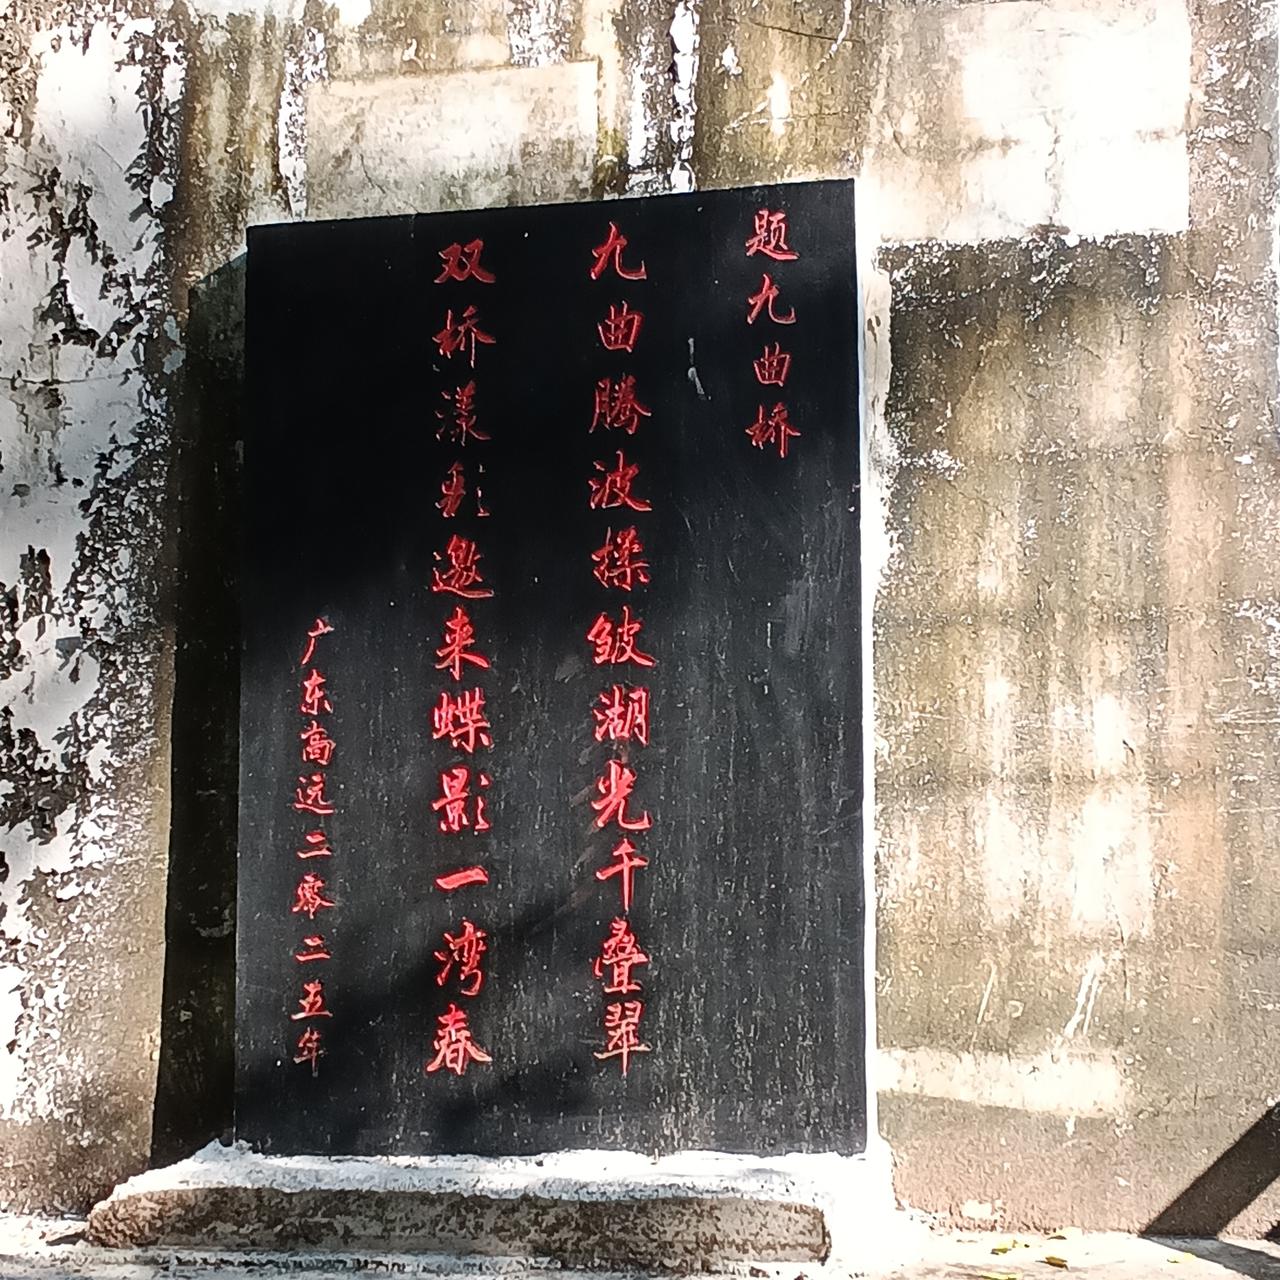 题九曲桥
九曲腾波揉皱湖光千叠翠
双桥漾彩邀来蝶影一湾春
广东高远二零二五年